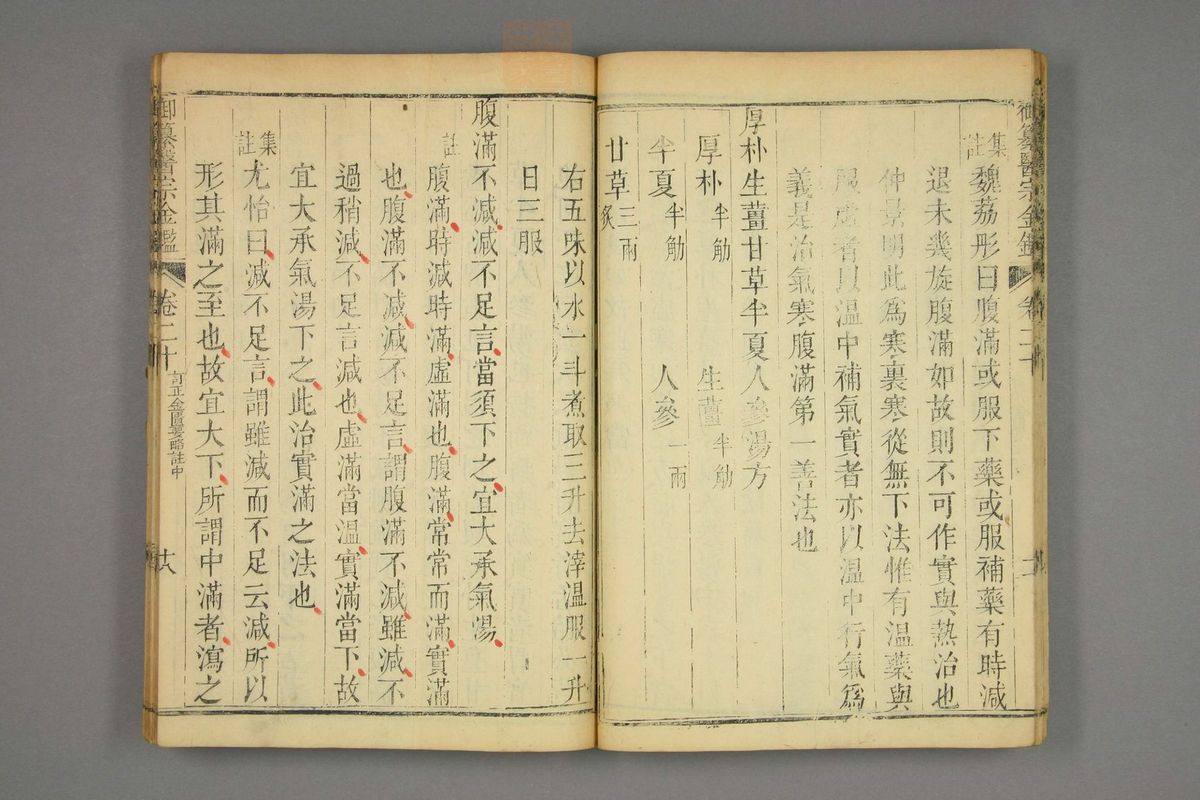 御纂醫宗金鑑 卷二十
集註 魏荔彤曰腹滿或服下藥或服補藥有時減
退未幾旋腹滿如故則不可作實與熱治也
仲景明此爲寒裏寒從無下法惟有溫藥與
服虛者以溫中補氣實者亦以溫中行氣爲
義是治氣寒腹滿第一善法也
厚朴生薑甘草半夏人參湯方
厚朴半觔 生薑半觔
半夏半觔 人參一兩
甘草三兩炙
右五味以水一斗煮取三升去滓溫服一升
日三服
腹滿不減減不足言當須下之宜大承氣湯
註 腹滿時減時滿虛滿也腹滿常常而滿實滿
也腹滿不減減不足言謂腹滿不減雖減不
過稍減不足言減也虛滿當溫實滿當下故
宜大承氣湯下之此治實滿之法也
集註 尤怡曰減不足言謂雖減而不足云減所以
形其滿之至也故宜大下所謂中滿者瀉之
御纂醫宗金鑑 卷二十 訂正金匱要略註中